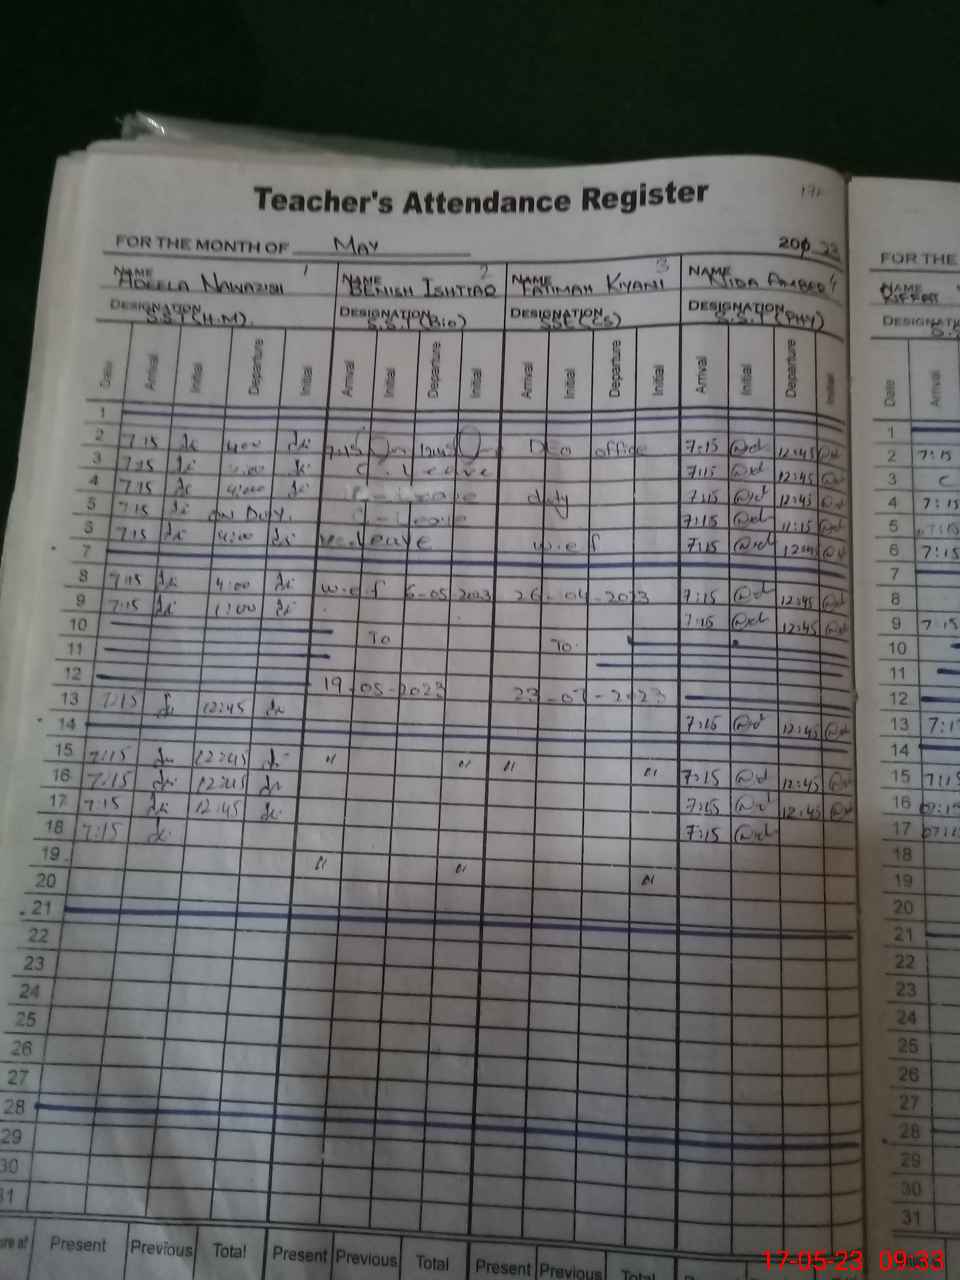 Teacher's Attendance Register
FOR THE MONTH OF MAY 200 23
NAME ADEELA NAWAZISH 1 NAME BENISH ISHTIAQ 2 NAME FATIMAH KIYANI 3 NAME NIDA 4
DESIGNATION S.S.T (H.M). DESIGNATION S.S.T (Bio) DESIGNATION SSE (CS) DESIGNATION S.S.T (PHY)
Date Arrival Initial Departure Initial Arrival Initial Departure Initial Arrival Initial Departure Initial Arrival Initial Departure Initial
1
2 7:15 4:00 7:15 office 7:15 12:45
3 7:15 4:00 C. leave 7:15 12:45
4 7:15 4:00 C-Leave duty 7:15 12:45
5 7:15 ON DUTY. C-Leave 7:15 11:15
6 7:15 4:00 leave w.e.f 7:15
7
8 7:15 4:00 w.e.f 6-05-2023 26-04-2023 7:15 12:45
9 7:15 1:00 7:15 12:45
10 To To
11
12 19-05-2023 23-07-2023
13 7:15 12:45 7:15 12:45
14
15 7:15 12:45 " " " " 7:15 12:45
16 7:15 12:45 7:15 12:45
17 7:15 12:45 7:15
18 7:15
19 " "
20 "
21
22
23
24
25
26
27
28
29
30
31
Present Previous Total Present Previous Total Present Previous Total
FOR THE
NAME
DESIGNATION
Date Arrival
1
2 7:15
3 C
4 7:15
5 7:15
6 7:15
7
8
9 7:15
10
11
12
13 7:1
14
15 7:15
16 07:15
17 07:1
18
19
20
21
22
23
24
25
26
27
28
29
30
31
17-05-23 09:33